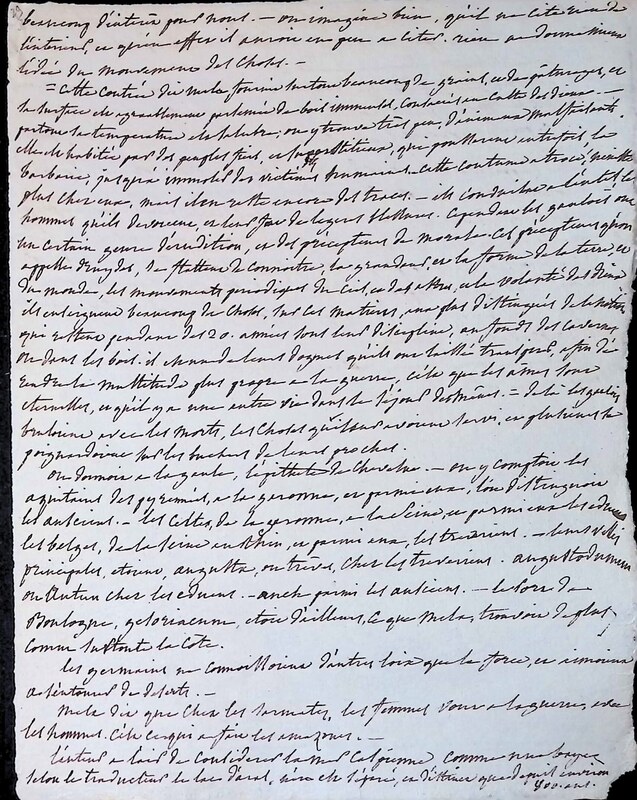 beaucoup d'intérêt pour nous. — on imagine bien, qu'il ne cite rien de
l'intérieur, ce qu'en effet il auroit eu peu a citer. rien ne donne mieux
l'idée du mouvement des choses. —
= Cette contrée dit mela fournit surtout beaucoup de grains, et de pâturages, et
sa surface est agréablement parsemée de bois immenses, consacrés au culte des dieux. —
partout la température est salubre, on y trouve très peu d'animaux malfaisants.
elle est habitée par des peuples fiers, et superstitieux, qui poussoient autrefois, la
barbarie, jusqu'à immoler des victimes humaines. cette coutume atroce, n'existe
plus chez eux, mais il en reste encore des traces. — ils conduisent a l'autel les
hommes qu'ils dévouent, et leur font de legeres blessures. Cependant les gaulois ont
un certain genre d'érudition, et des précepteurs de morale. Ces précepteurs qu'on
appelle druydes, se flattent de connoitre, la grandeur, et la forme de la terre, et
du monde, les mouvements periodiques du Ciel, et des astres, et la volonté des dieux
ils enseignent beaucoup de choses, sur ces matieres, aux plus distingués de la nation
qui restent pendant des 20. années sous leur discipline, au fonds des cavernes
ou dans les bois. il est un de leurs dogmes qu'ils ont laissé transpirer, afin de
rendre la multitude plus propre a la guerre, c'est que les ames sont
eternelles, et qu'il y a une autre vie dans le séjour des mânes. — delà les gaulois
bruloient avec les morts, les choses qu'ils leur avoient servi, et plusieurs se
poignardoient sur les buchers de leurs proches.
On donnoit a la gaule, l'épithete de Chevelue. — on y comptoit les
aquitains des pyrennées, a la garonne, et parmi eux, l'on distinguoit
les ausciens. — les Celtes, de la garonne, a la Seine, et parmi eux les eduens
les belges, de la Seine au Rhin, et parmi eux, les treviriens. — leurs villes
principales, etoient, augusta, ou trèves, chez les treveriens. augustodunum
ou Autun chez les eduens. — auch parmi les ausciens. — le Port de
Boulogne, gesoriacum, etoit d'ailleurs, ce que mela, trouvoit de plus
connu sur toute la cote.
les germains ne connoissoient d'autres loix que la force, et aimoient
a s'entourer de deserts. —
mela dit que chez les sarmates, les femmes vont a la guerre, avec
les hommes. c'est ce qui a fait les amazones. —
l'auteur a l'air de considérer la mer Caspienne comme une baye
selon le traducteur le lac d'aral, n'en est séparé, et distinct que depuis environ
400. ans.